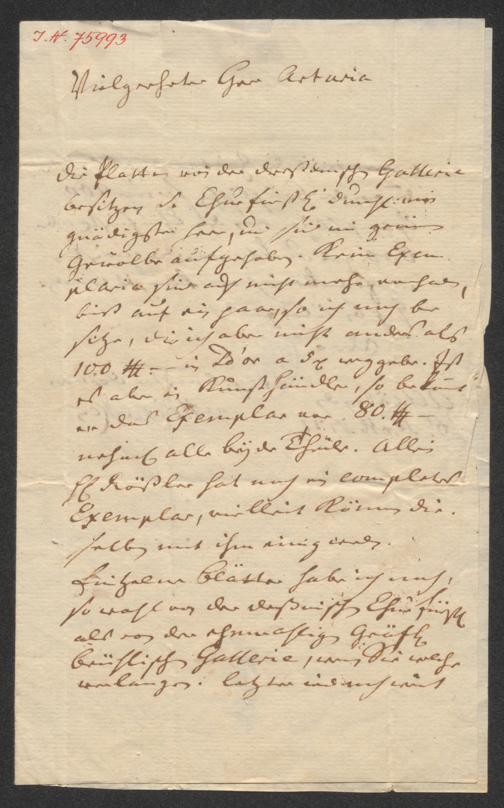 J.N. 75993
Vielgeehrter Herr Artaria
die Platten von der dreßdnischen Gallerie
besitzen Se Churfürstl. Durchl. mein
gnädigster Herr, und sind im grünen
Gewölbe aufgehoben. Kein Exem
plaria sind auch nicht mehr vorhanden,
biß auf ein paar, so ich noch be
sitze, die ich aber nicht anders als
100 in Ld'or a 5 weggebe. Ist
es aber ein Kunsthändler, so bekommt
er das Exemplar vor 80
nehml. alle beyde Theile. Allein
H. Rößler hat noch ein completes
Exemplar, vielleicht können die
selben mit ihm einig werden.
Eintzelne Blätter habe ich noch,
so wohl von der dreßdnischen Churfürstl.
als von der ehmahligen Gräfl.
brühlischen Gallerie, wenn Sie welche
verlangen. letzter sind noch nicht